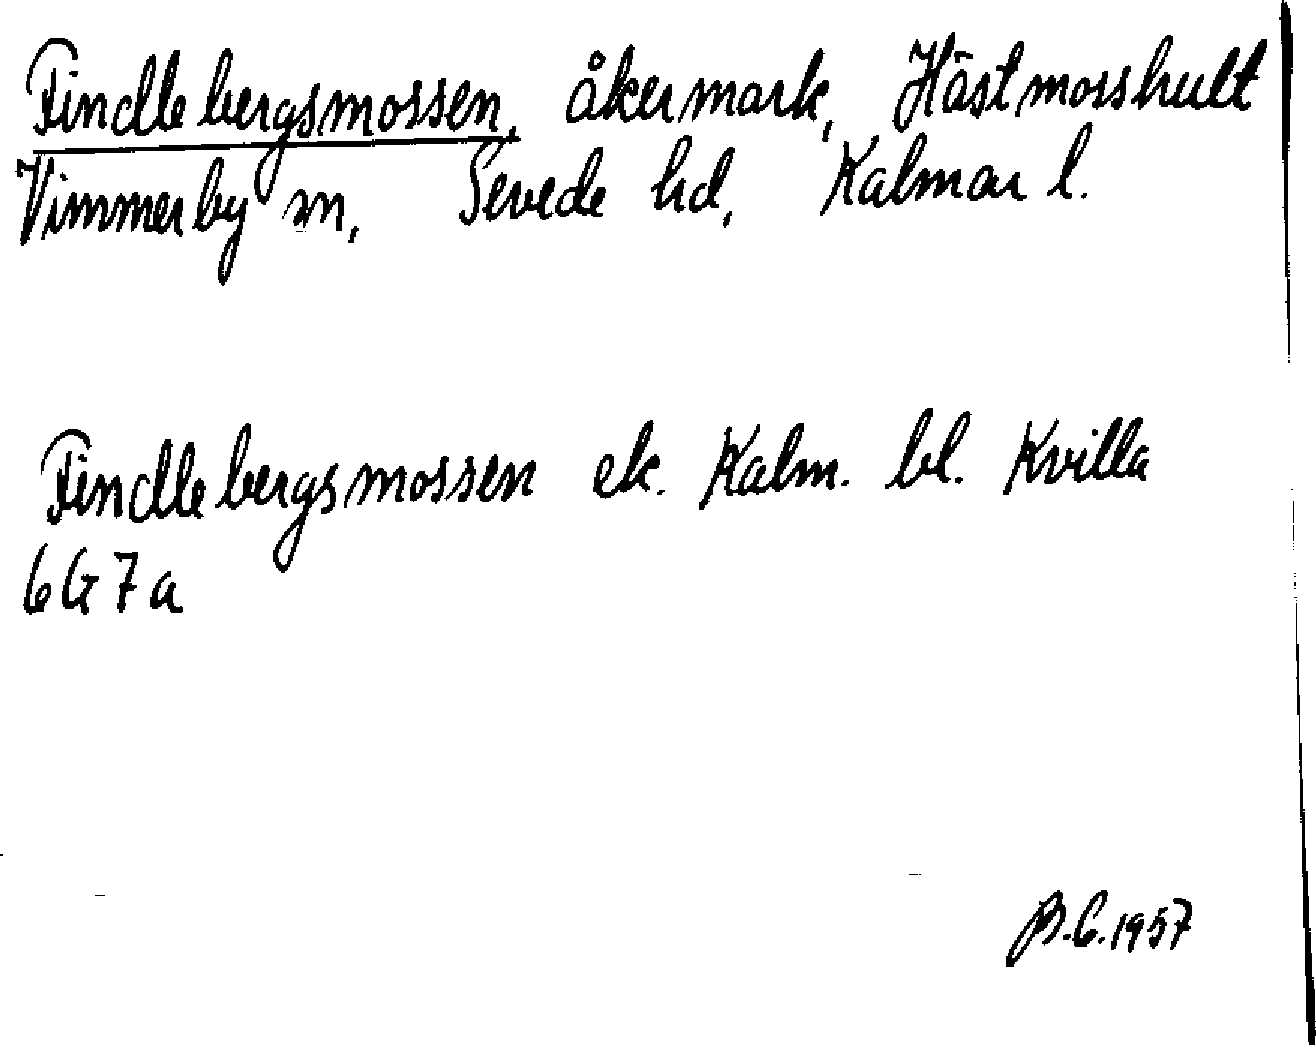 Findlebergsmossen, åkermark, Hästmosshult
Vimmerby sn, Sevede hd, Kalmar l.
Findlebergsmossen ek. Kalm. bl. Kvilla
6G7a
B.C.1957